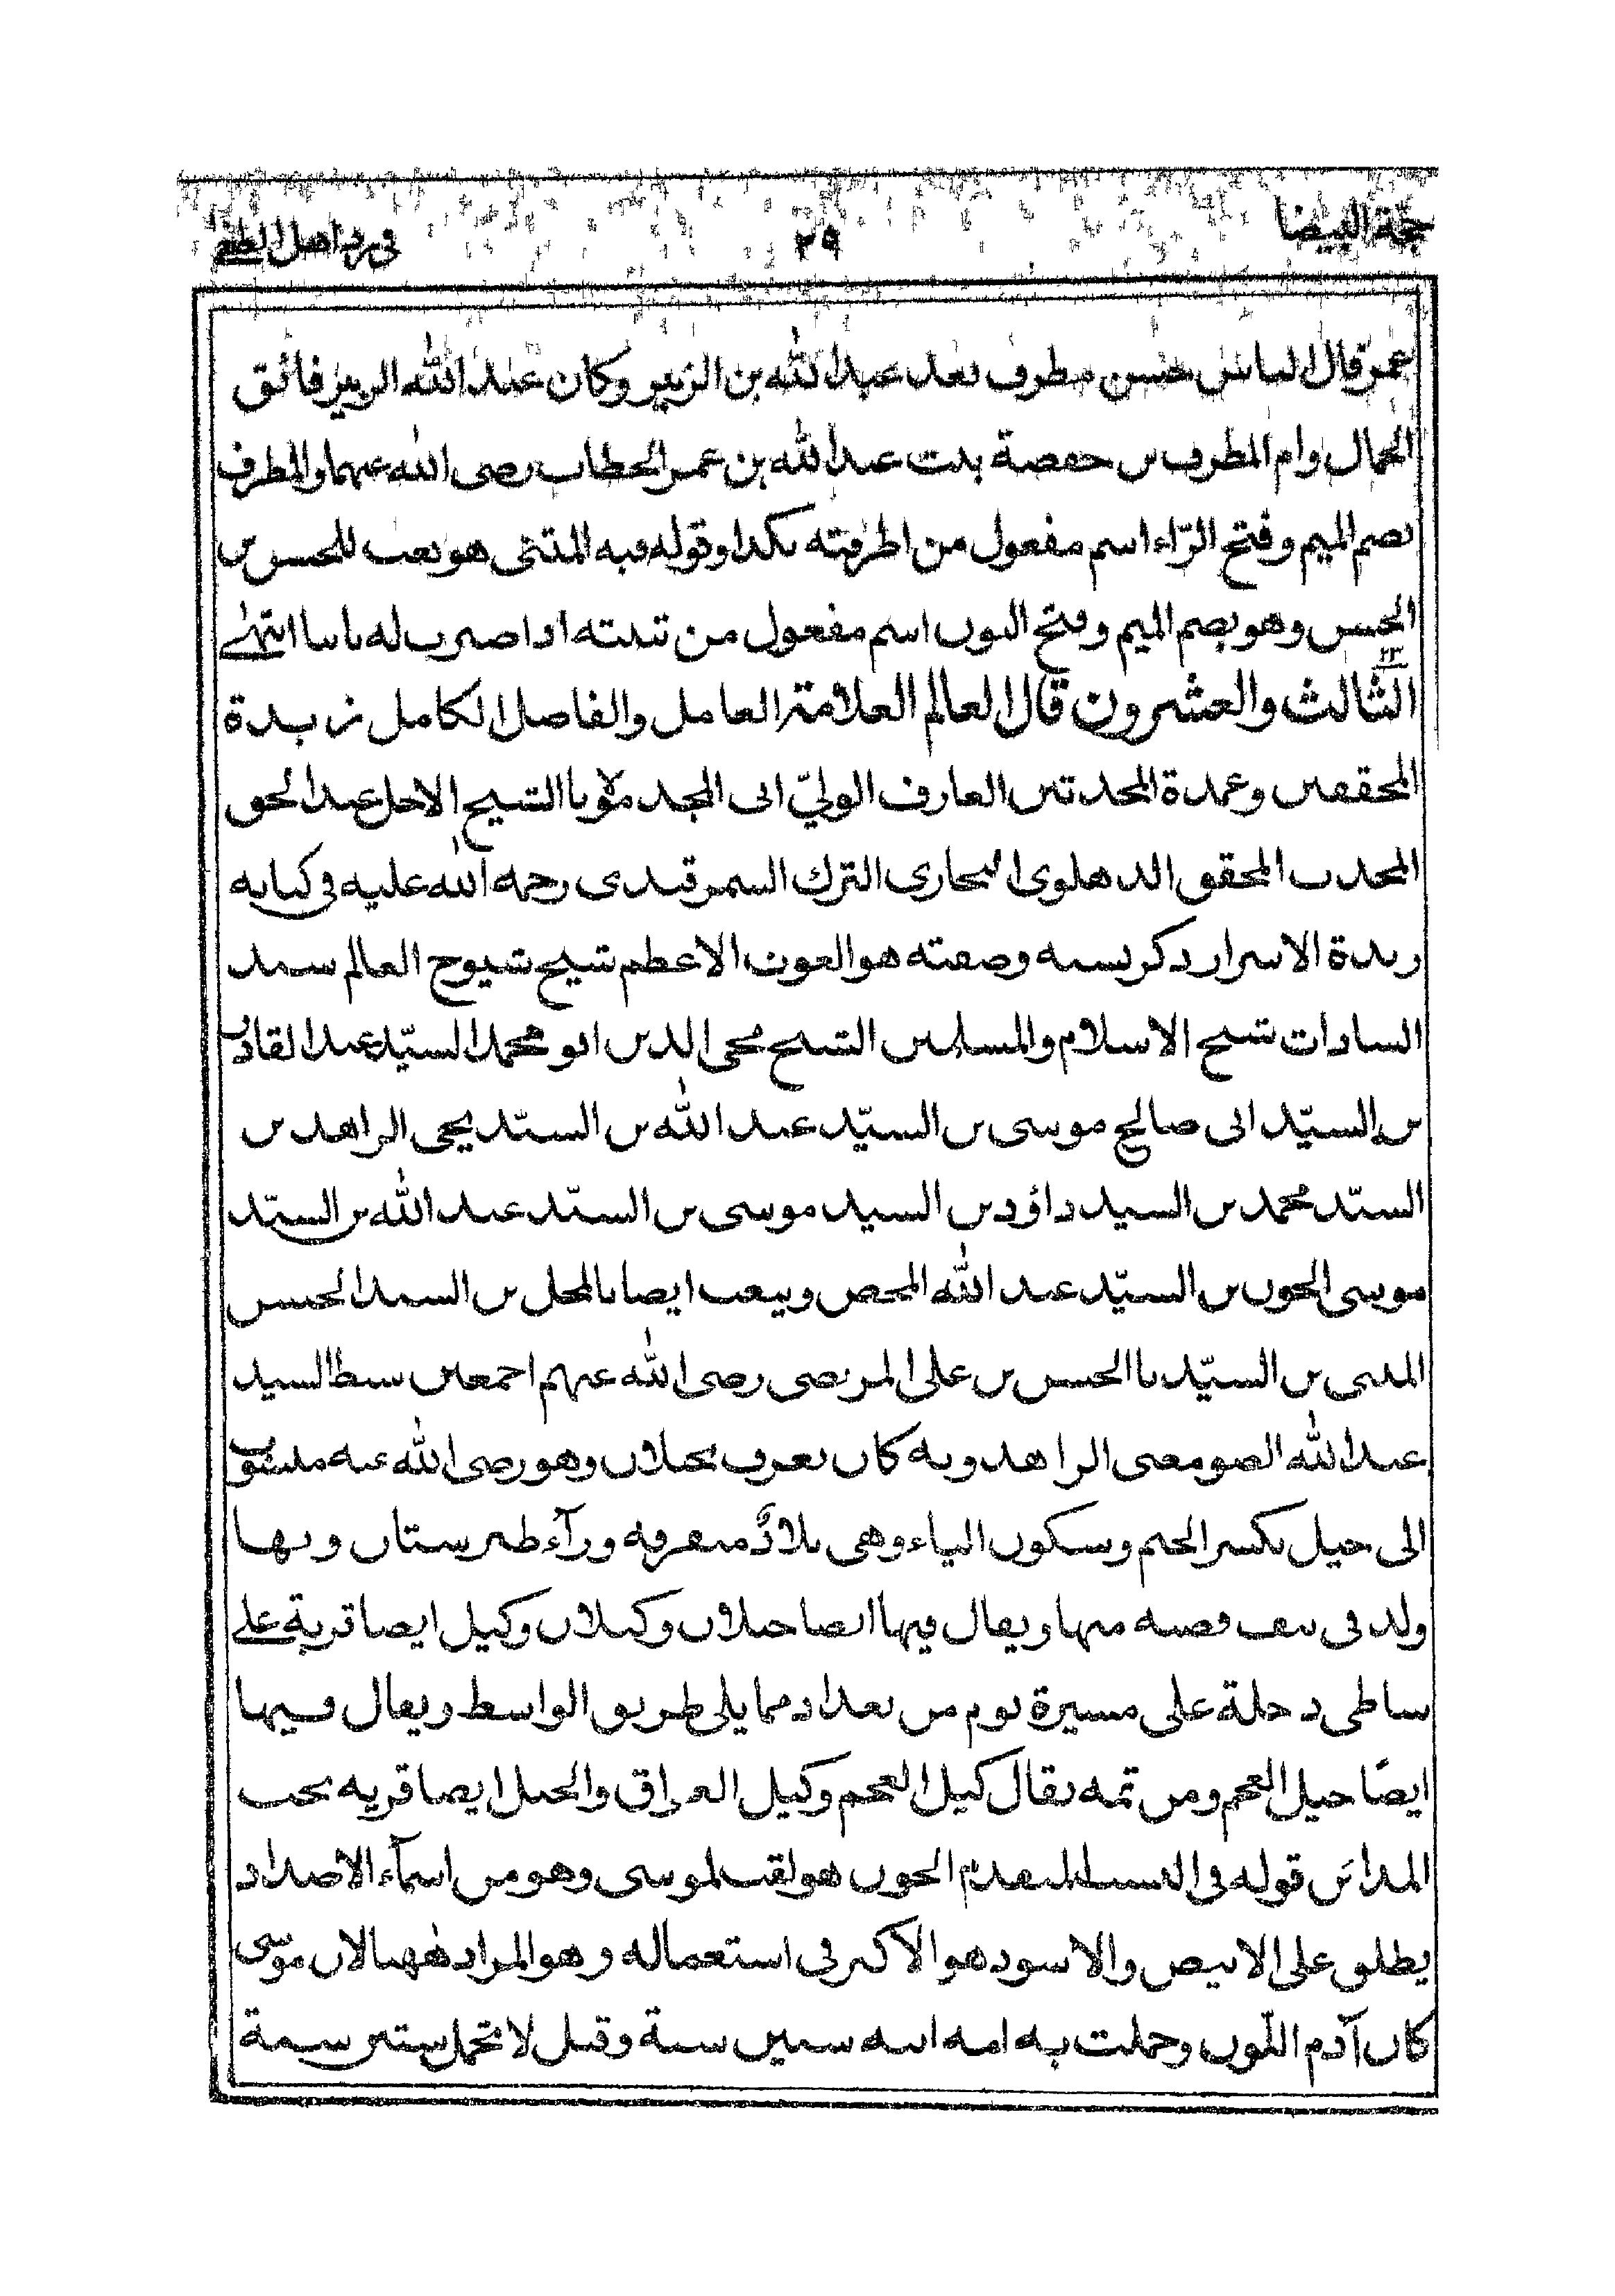 حجة البيضا ٢٩ فی رد اهل الطغے
عمرو قال الناس حسن مطرف بعد عبد الله بن الزبير وكان عبد الله الزبير فائق
الجمال وام المطرف بن حفصة بنت عبد الله بن عمر الخطاب رضى الله عنهما والمطرف
بضم الميم وفتح الرّاء اسم مفعول من اطرفته بكذا وقوله فيه المثنى هو نعت للحسن بن
الحسن وهو بضم الميم وفتح النون اسم مفعول من ثنيته اذا صرت له ثانيا انتهٰے
٢٣
الثالث والعشرون قال العالم العلامة العامل والفاضل الكامل زبدة
المحققين وعمدة المحدثين العارف الوليّ ابى المجد مولانا الشيخ الاجل عبد الحق
المحدث المحقق الدهلوى البخاري الترك السمرقندى رحمه الله عليه فى كتابه
زبدة الاسرار ذكر نسبه وصفته هو الغوث الاعظم شيخ شيوخ العالم سيد
السادات شيخ الاسلام والمسلمين الشيخ محى الدين ابو محمد السيّد عبد القادر
بن السيّد ابى صالح موسى بن السيّد عبد الله بن السيّد يحيى الزاهد بن
السيّد محمد بن السيد داؤد بن السيد موسى بن السيّد عبد الله بن السيّد
موسى الجون بن السيّد عبد الله المحض وينعت ايضا بالمجل بن السيد الحسن
المثنى بن السيّدنا الحسن بن على المرتضى رضى الله عنهم اجمعين سبط السيد
عبد الله الصومعى الزاهد وبه كان يعرف بجيلان وهو رضى الله عنه منسوب
الى جيل بكسر الجيم وسكون الياء وهى بلادٌ متفرقه ورآء طبرستان وبها
ولد فى نيف قصبه منها ويقال فيها ايضا جيلان وكيلان وكيل ايضا قرية علے
ساطى دجلة على مسيرة يوم من بغداد مما يلى طريق الواسط ويقال فيها
ايضًا جيل العجم ومن ثمه يقال كيل العجم وكيل العراق والجيل ايضا قريه تحت
المدائن قوله فى النسب المقدم الجون هو لقب لموسى وهو من اسمآء الاضداد
يطلق على الابيض والاسود هو الاكثر فى استعماله وهو المراد هٰهنا لان موسى
كان آدم اللّون وحملت به امه ابنه ستين سنة وقيل لا تحمل ستين سنة